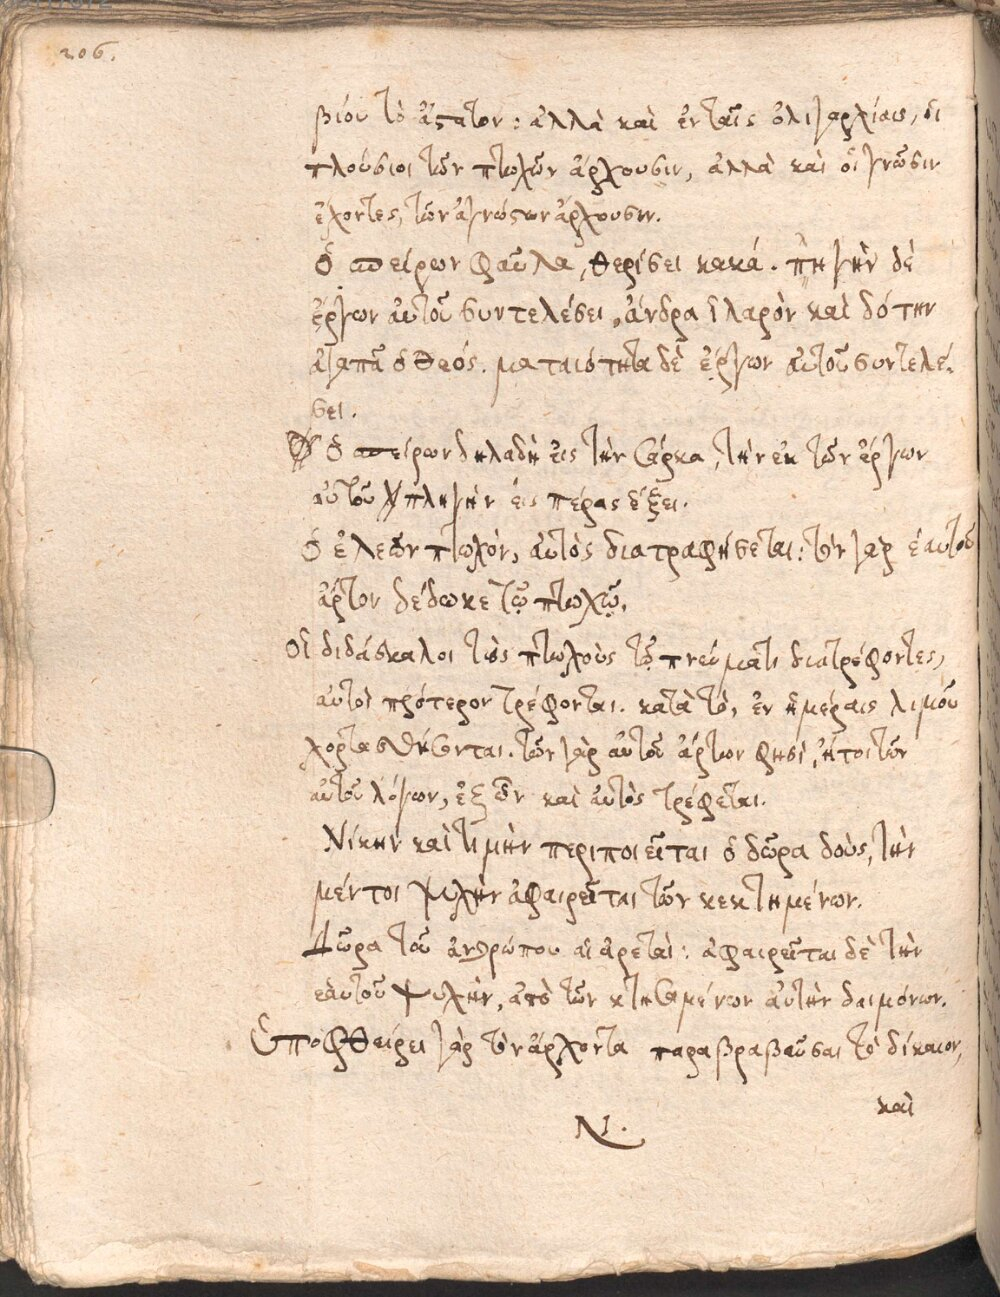 206.
βίου τὸ ἄστατον: ἀλλὰ καὶ ἐν ταῖς ὀλιγαρχίαις, οἱ
πλούσιοι τῶν πτωχῶν ἄρχουσιν, ἀλλὰ καὶ οἱ γνῶσιν
ἔχοντες, τῶν ἀγνώστων ἄρχουσιν.
Ὁ σπείρων φαῦλα, θερίσει κακά. πληγὴν δὲ
ἔργων αὐτοῦ συντελέσει, ἄνδρα ἱλαρὸν καὶ δότην
ἀγαπᾶ ὁ Θεός. ματαιότητα δὲ ἔργων αὐτοῦ συντελέ,
σει.
Ὁ σπείρων δηλαδὴ εἰς τὴν σάρκα, τὴν ἐκ τῶν ἔργων
αὐτοῦ πληγὴν εἰς πέρας ἕξει.
Ὁ ἐλεῶν πτωχόν, αὐτὸς διατραφήσεται: τὸν γὰρ ἑαυτοῦ
ἄρτον δέδωκε τῷ πτωχῷ.
Οἱ διδάσκαλοι τοὺς πτωχοὺς τῷ πνεύματι διατρέφοντες,
αὐτοὶ πρότερον τρέφονται. κατὰ τό, ἐν ἡμέραις λιμοῦ
χορτασθήσονται. τῶν γὰρ αὐτοῦ ἄρτων φησί, ἤτοι τῶν
αὐτοῦ λόγων, ἐξ ὧν καὶ αὐτὸς τρέφεται.
Νίκην καὶ τιμὴν περιποιεῖται ὁ δῶρα δούς, τὴν
μέντοι ψυχὴν ἀφαιρεῖται τῶν κεκτημένων.
Δῶρα τοῦ ἀνθρώπου αἱ ἀρεταί: ἀφαιρεῖται δὲ τὴν
ἑαυτοῦ ψυχήν, ἀπὸ τῶν κτησαμένων αὐτὴν δαιμόνων.
Ὑποφθείρει γὰρ τὸν ἄρχοντα παραβραβεῦσαι τὸ δίκαιον,
καὶ